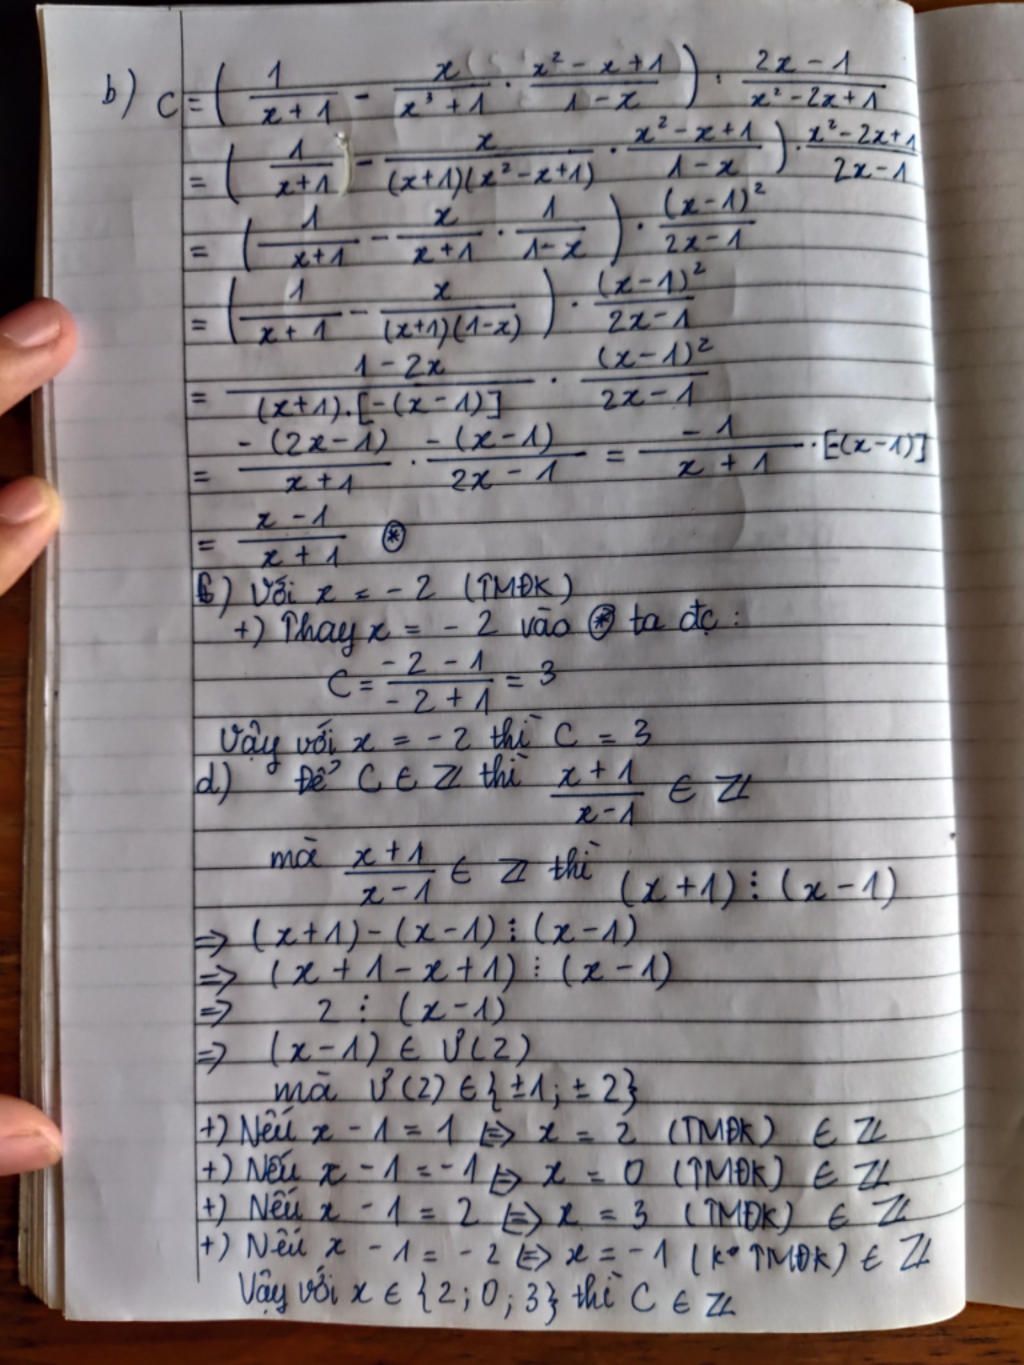 b) C = ( 1/(x+1) - x/(x³+1) · (x²-x+1)/(1-x) ) : (2x-1)/(x²-2x+1)
= ( 1/(x+1) - x/((x+1)(x²-x+1)) · (x²-x+1)/(1-x) ) · (x²-2x+1)/(2x-1)
= ( 1/(x+1) - x/(x+1) · 1/(1-x) ) · (x-1)²/(2x-1)
= ( 1/(x+1) - x/((x+1)(1-x)) ) · (x-1)²/(2x-1)
= (1-2x)/((x+1).[-(x-1)]) · (x-1)²/(2x-1)
= -(2x-1)/(x+1) · -(x-1)/(2x-1) = -1/(x+1) · [-(x-1)]
= (x-1)/(x+1) ⊛
) Với x = -2 (TMĐK)
+) Thay x = -2 vào ⊛ ta đc :
C = (-2-1)/(-2+1) = 3
Vậy với x = -2 thì C = 3
d) Để C ∈ Z thì (x+1)/(x-1) ∈ Z
mà (x+1)/(x-1) ∈ Z thì (x+1) ⋮ (x-1)
=> (x+1)-(x-1) ⋮ (x-1)
=> (x+1-x+1) ⋮ (x-1)
=> 2 ⋮ (x-1)
=> (x-1) ∈ Ư(2)
mà Ư(2) ∈ {±1; ±2}
+) Nếu x-1 = 1 <=> x = 2 (TMĐK) ∈ Z
+) Nếu x-1 = -1 <=> x = 0 (TMĐK) ∈ Z
+) Nếu x-1 = 2 <=> x = 3 (TMĐK) ∈ Z
+) Nếu x-1 = -2 <=> x = -1 (k° TMĐK) ∈ Z
Vậy với x ∈ {2; 0; 3} thì C ∈ Z